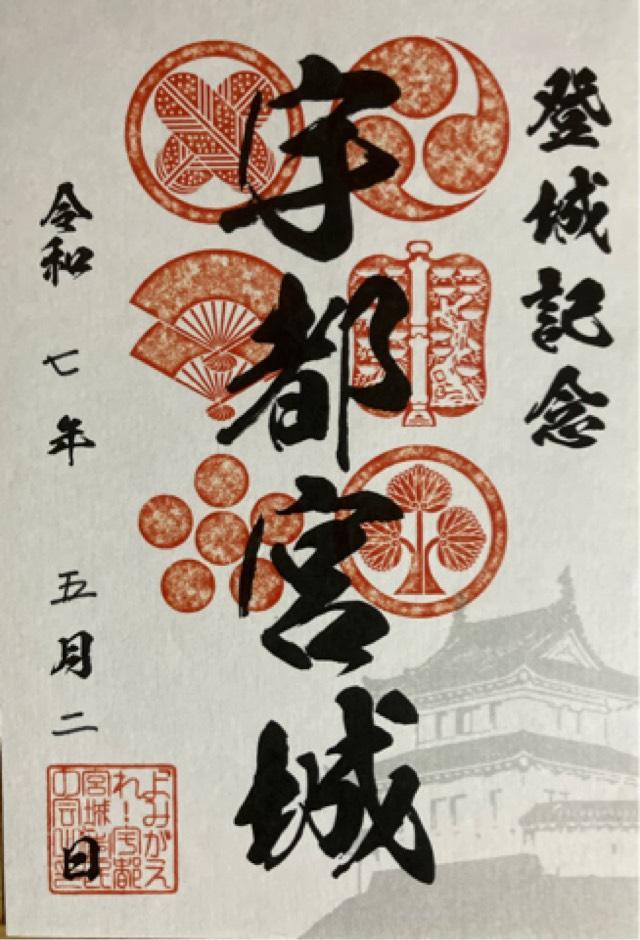 登城記念
宇都宮城
令和 七年 五月二日
よみがえ
れ！宇都
宮城市民
の会之印